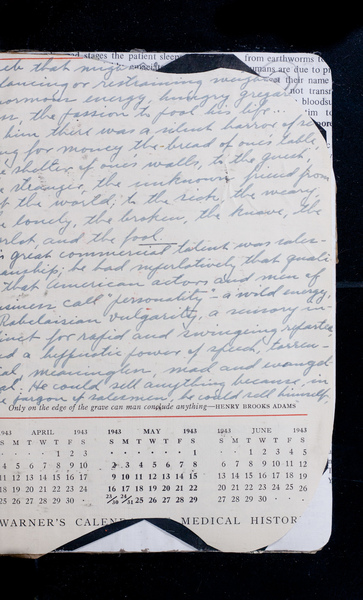 stages the patient sleep
from earthworms to
umans are due to p
their name
not transf
bloodsu
that mig
lancing or restraining
normous energy, hungry
n, the passion to fool his life...
him there was a silent horror of se
ng for money the bread of one's table,
e shelter of one's walls, to the guest,
e stranger, the unknown friend from
t the world; to the sick, the weary,
e lonely, the broken, the knave, the
rlot, and the fool.
s great commercial talent was sales-
anship; he had superlatively that quali
that American actors and men of
siness call "personality" - a wild energy,
Rabelaisian vulgarity, a sensory in-
inct for rapid and swinging repartee
d a hypnotic power of speech, torren-
ial, meaningless, mad and evangel-
cal. He could sell anything because, in
e jargon of salesmen, he could sell himself,
Only on the edge of the grave can man conclude anything—HENRY BROOKS ADAMS
943 APRIL 1943 1943 MAY 1943 1943 JUNE 1943
S M T W T F S S M T W T F S S M T W T F S
· · · · 1 2 3 · · · · · · 1 · · 1 2 3 4 5
4 5 6 7 8 9 10 2 3 4 5 6 7 8 6 7 8 9 10 11 12
11 12 13 14 15 16 17 9 10 11 12 13 14 15 13 14 15 16 17 18 19
18 19 20 21 22 23 24 16 17 18 19 20 21 22 20 21 22 23 24 25 26
25 26 27 28 29 30 · 23/30 24/31 25 26 27 28 29 27 28 29 30 · · ·
WARNER'S CALEN MEDICAL HISTOR